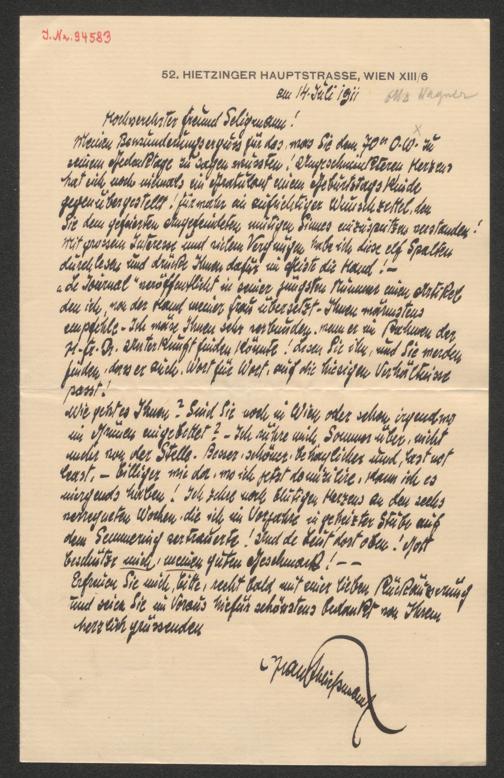 J. Nr. 94583
52. HIETZINGER HAUPTSTRASSE, WIEN XIII/6
am 14 Juli 1911
Otto Wagner
Hochverehrter Freund Seligmann!
Meinen Bewunderungserguss für das, was Sie dem 70er O.W. zu
seinem Gedenktage zu sagen wussten! Ungeschminkteren Herzens
hat sich noch niemals ein Gratulant einem Geburtstagskinde
gegenübergestellt! Fürwahr ein aufrichtiger Wunschzettel, den
Sie dem gefeierten angefeindeten, mutigen Sinnes verstanden!
Mit grossem Interesse und vielem Vergnügen habe ich diese elf Spalten
durchlesen und drücke Ihnen dafür im Geiste die Hand! -
"Le Journal" veröffentlicht in seiner jüngsten Nummer einen Artikel
den ich, von der Hand meiner Frau übersetzt - Ihnen wärmstens
empfehle - Ich wäre Ihnen sehr verbunden, wenn er im Rahmen der
N. Fr. Pr. Unterkunft finden könnte! Lesen Sie ihn, und Sie werden
finden, dass er auch, Wort für Wort, auf die hiesigen Verhältnisse
passt!
Wie geht es Ihnen? Sind Sie noch in Wien oder schon irgendwo
im Grünen eingebettet? - Ich rühre mich, Sommer über, nicht
mehr von der Stelle. Besser, schöner, behaglicher und, last not
least, - billiger wie da, wo ich jetzt domiziliere, kann ich es
nirgends haben! Ich zehre noch blutigen Herzens an den sechs
verregneten Wochen, die ich im Vorjahre in geheizter Stube auf
dem Semmering vertrauerte! Und die Leut dort oben! Gott
beschütze mich, meinen guten Geschmack! - -
Erfreuen Sie mich, bitte, recht bald mit einer lieben Rückäusserung
und seien Sie im Voraus hiefür schönstens bedankt von Ihrem
herzlich grüssenden